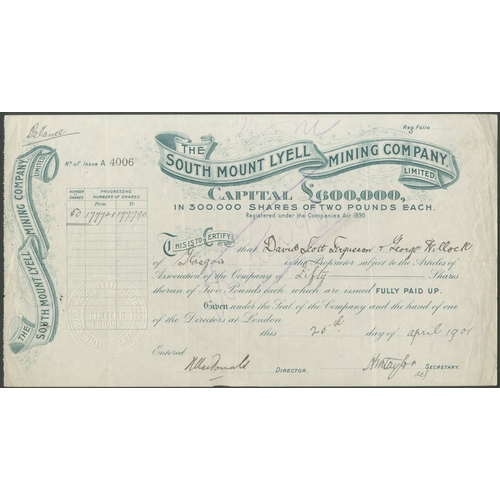 Balance
Reg. Folio
THE
SOUTH MOUNT LYELL MINING COMPANY
LIMITED.
No. of Issue A 4006
CAPITAL £600,000,
IN 300,000 SHARES OF TWO POUNDS EACH.
Registered under the Companies Act 1890.
NUMBER OF SHARES. PROGRESSIVE NUMBERS OF SHARES.
From To
50
THIS IS TO CERTIFY that David Scott Ferguson & George Willock
of Glasgow is the Proprietor subject to the Articles of
Association of the Company of Fifty Shares
therein of Two Pounds each, which are issued FULLY PAID UP.
Given under the Seal of the Company and the hand of one
of the Directors at London
this 25th day of April 1901
Entered
DIRECTOR. SECRETARY.
THE SOUTH MOUNT LYELL MINING COMPANY LIMITED